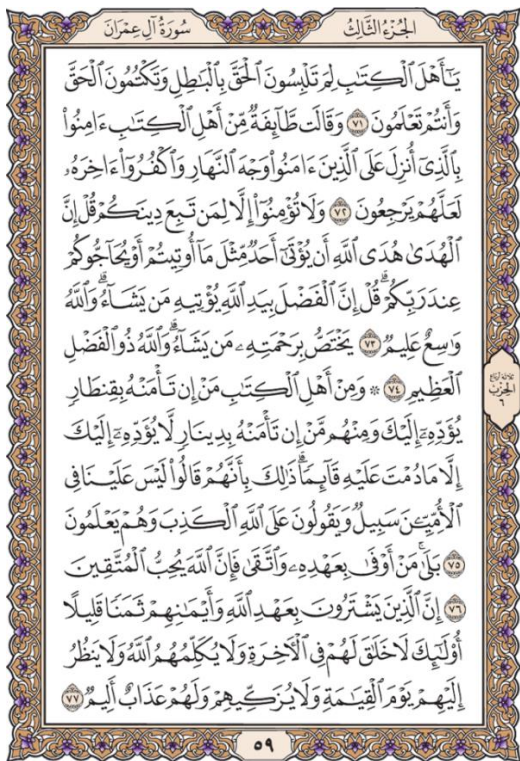 الجُزْءُ الثَّالِثُ
سُورَةُ آلِ عِمْرَانَ
يَـٰٓأَهْلَ ٱلْكِتَـٰبِ لِمَ تَلْبِسُونَ ٱلْحَقَّ بِٱلْبَـٰطِلِ وَتَكْتُمُونَ ٱلْحَقَّ
وَأَنتُمْ تَعْلَمُونَ ٧١ وَقَالَت طَّآئِفَةٌ مِّنْ أَهْلِ ٱلْكِتَـٰبِ ءَامِنُوا۟
بِٱلَّذِىٓ أُنزِلَ عَلَى ٱلَّذِينَ ءَامَنُوا۟ وَجْهَ ٱلنَّهَارِ وَٱكْفُرُوٓا۟ ءَاخِرَهُۥ
لَعَلَّهُمْ يَرْجِعُونَ ٧٢ وَلَا تُؤْمِنُوٓا۟ إِلَّا لِمَن تَبِعَ دِينَكُمْ قُلْ إِنَّ
ٱلْهُدَىٰ هُدَى ٱللَّهِ أَن يُؤْتَىٰٓ أَحَدٌ مِّثْلَ مَآ أُوتِيتُمْ أَوْ يُحَآجُّوكُمْ
عِندَ رَبِّكُمْ ۗ قُلْ إِنَّ ٱلْفَضْلَ بِيَدِ ٱللَّهِ يُؤْتِيهِ مَن يَشَآءُ ۗ وَٱللَّهُ
وَٰسِعٌ عَلِيمٌ ٧٣ يَخْتَصُّ بِرَحْمَتِهِۦ مَن يَشَآءُ ۗ وَٱللَّهُ ذُو ٱلْفَضْلِ
ٱلْعَظِيمِ ٧٤ ۞ وَمِنْ أَهْلِ ٱلْكِتَـٰبِ مَنْ إِن تَأْمَنْهُ بِقِنطَارٍ
يُؤَدِّهِۦٓ إِلَيْكَ وَمِنْهُم مَّنْ إِن تَأْمَنْهُ بِدِينَارٍ لَّا يُؤَدِّهِۦٓ إِلَيْكَ
إِلَّا مَا دُمْتَ عَلَيْهِ قَآئِمًا ۗ ذَٰلِكَ بِأَنَّهُمْ قَالُوا۟ لَيْسَ عَلَيْنَا فِى
ٱلْأُمِّيِّـۧنَ سَبِيلٌ وَيَقُولُونَ عَلَى ٱللَّهِ ٱلْكَذِبَ وَهُمْ يَعْلَمُونَ
٧٥ بَلَىٰ مَنْ أَوْفَىٰ بِعَهْدِهِۦ وَٱتَّقَىٰ فَإِنَّ ٱللَّهَ يُحِبُّ ٱلْمُتَّقِينَ
٧٦ إِنَّ ٱلَّذِينَ يَشْتَرُونَ بِعَهْدِ ٱللَّهِ وَأَيْمَـٰنِهِمْ ثَمَنًا قَلِيلًا
أُو۟لَـٰٓئِكَ لَا خَلَـٰقَ لَهُمْ فِى ٱلْـَٔاخِرَةِ وَلَا يُكَلِّمُهُمُ ٱللَّهُ وَلَا يَنظُرُ
إِلَيْهِمْ يَوْمَ ٱلْقِيَـٰمَةِ وَلَا يُزَكِّيهِمْ وَلَهُمْ عَذَابٌ أَلِيمٌ ٧٧
الحِزْب
٦
٥٩